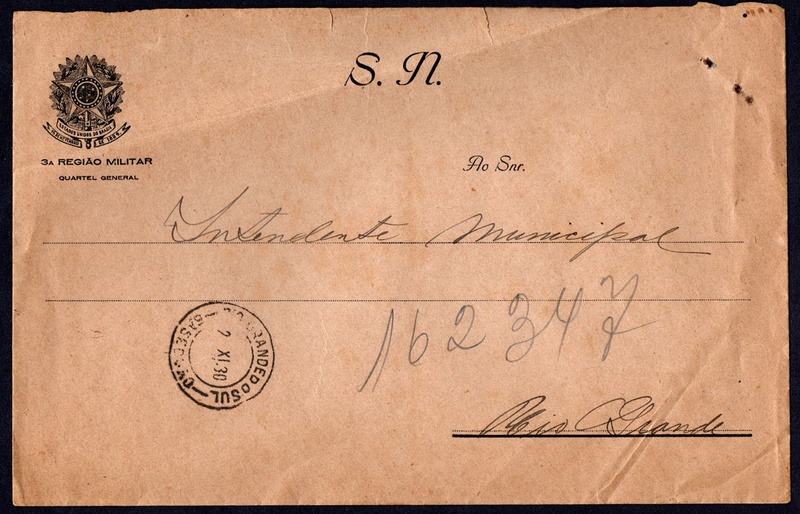 S. N.
ESTADOS UNIDOS DO BRAZIL
15 DE NOVEMBRO DE 1889
3A REGIÃO MILITAR
QUARTEL GENERAL
Ao Snr.
Intendente Municipal
162347
RIO GRANDE DO SUL
2 XI.30
Rio Grande